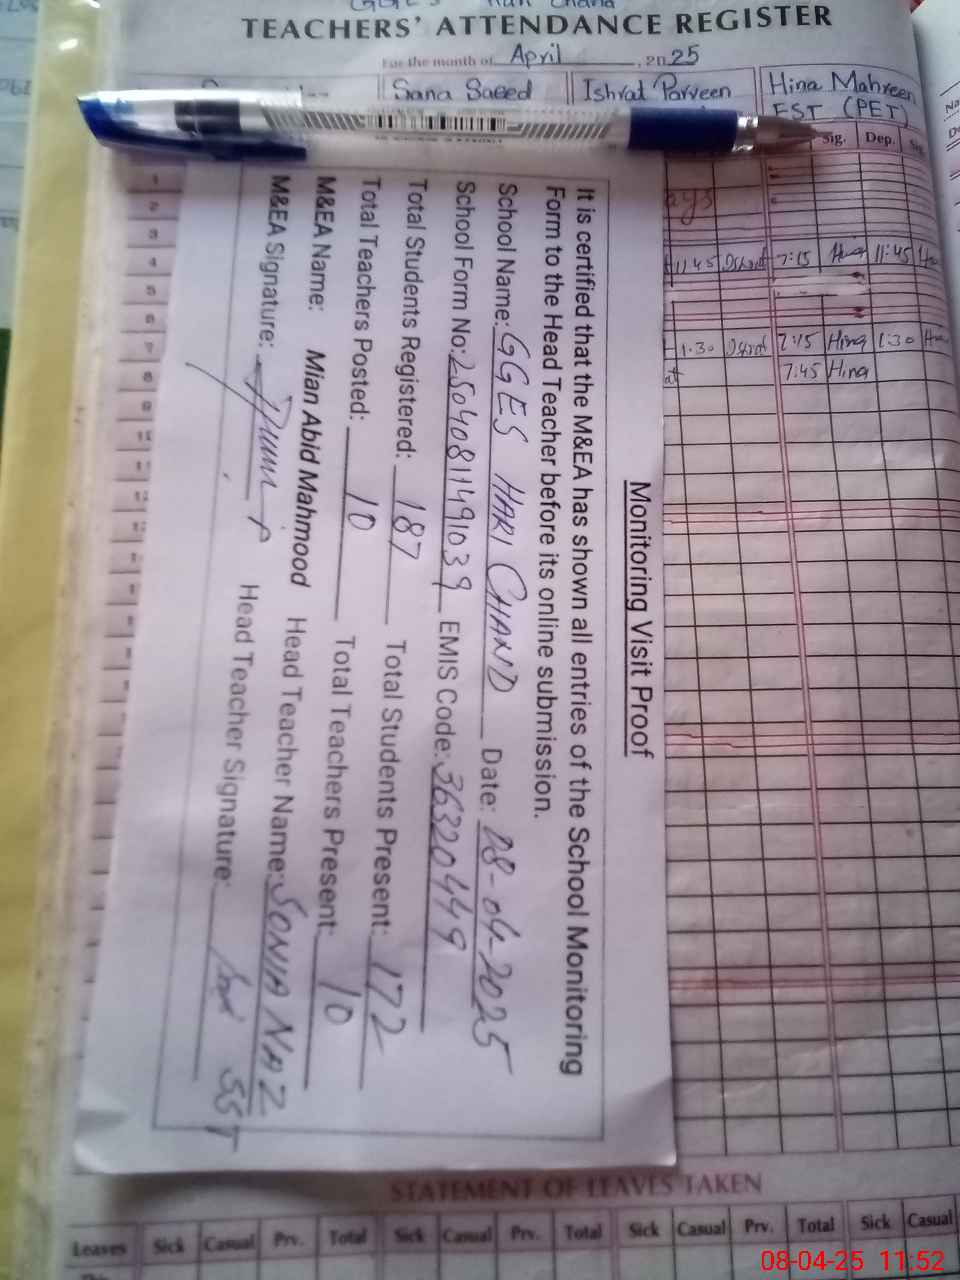 TEACHERS' ATTENDANCE REGISTER
For the month of April, 2025
Sana Saeed
Ishrat Parveen
Hina Mahreen
EST (PET)
Sig. Dep.
11:45 7:15 11:45
1:30 7:15 Hina 1:30
7:45 Hina
Monitoring Visit Proof
It is certified that the M&EA has shown all entries of the School Monitoring
Form to the Head Teacher before its online submission.
School Name: GGES HARI CHAND Date: 08-04-2025
School Form No: 25040811491039 EMIS Code: 36320449
Total Students Registered: 187 Total Students Present: 172
Total Teachers Posted: 10 Total Teachers Present: 10
M&EA Name: Mian Abid Mahmood Head Teacher Name: SONIA NAZ
M&EA Signature: Head Teacher Signature: SST
STATEMENT OF LEAVES TAKEN
Leaves Sick Casual Prv. Total Sick Casual Prv. Total Sick Casual Prv. Total Sick Casual
08-04-25 11:52